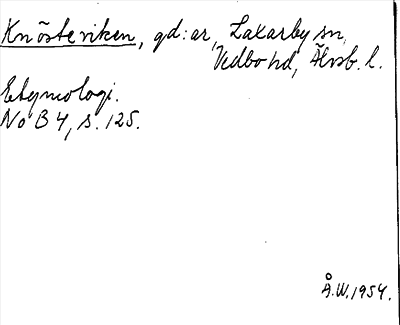 Knösteviken, gd:ar, Laxarby sn,
Vedbo hd, Älvsb. l.
Etymologi.
NoB 4, s. 125.
Å.W. 1954.